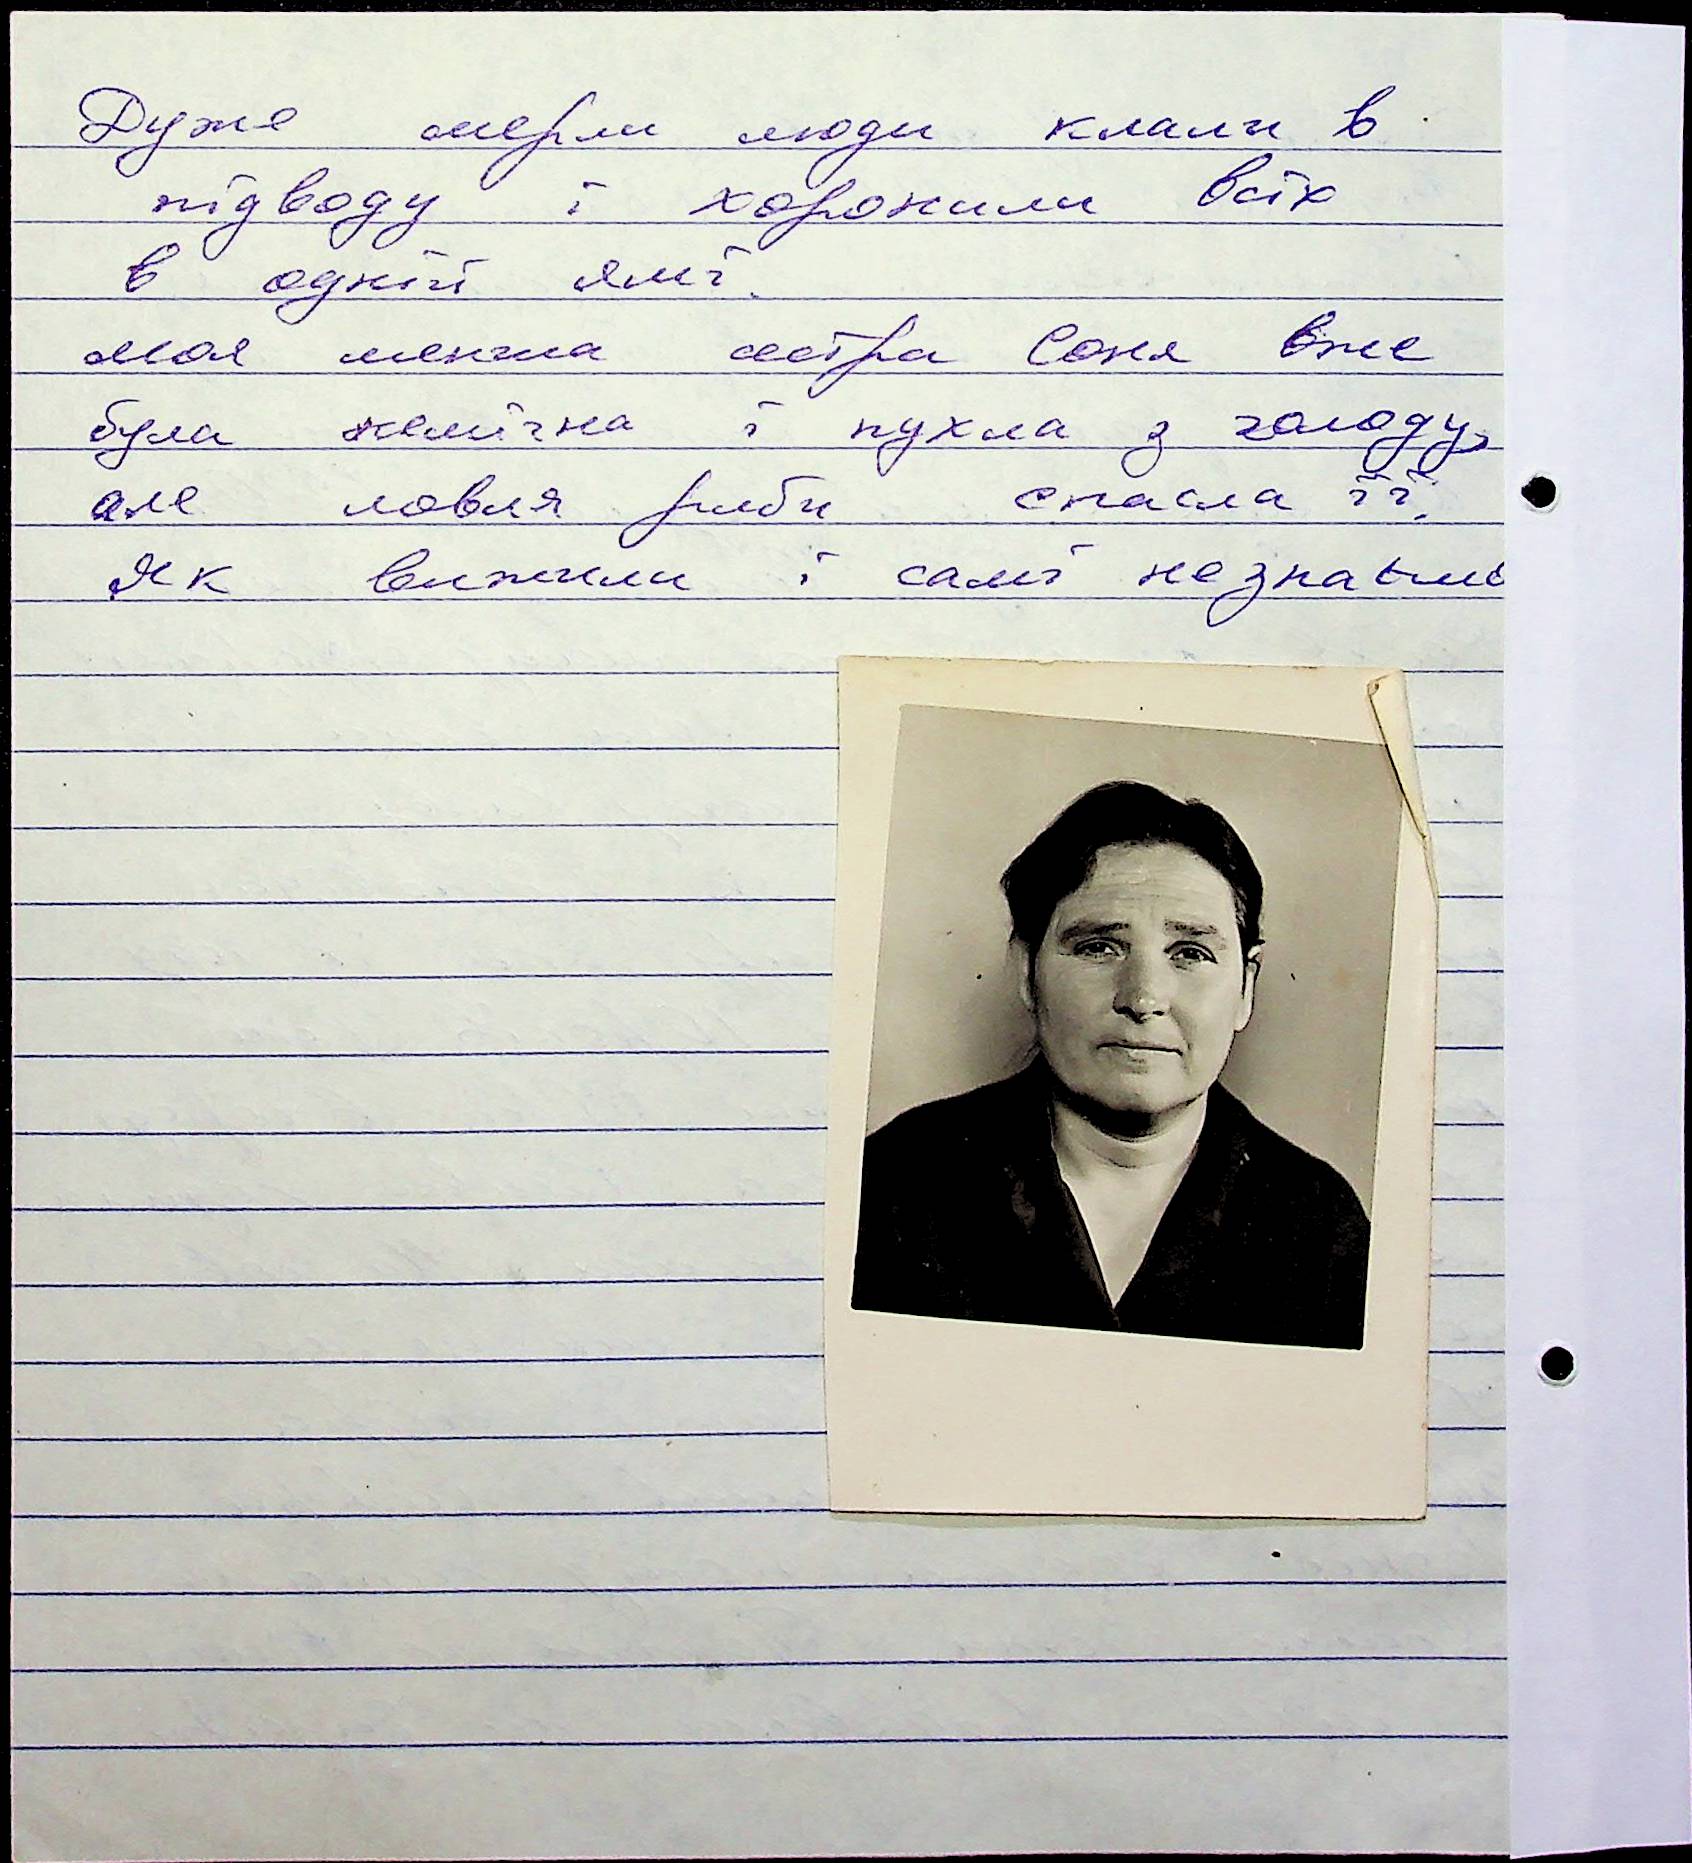 Дуже мерли люди клали в
підводу і хоронили всіх
в одній ямі.
моя менша сестра Соня вже
була немічна і пухла з голоду,
але ловля риби спасла її.
Як вижили і самі незнаємо